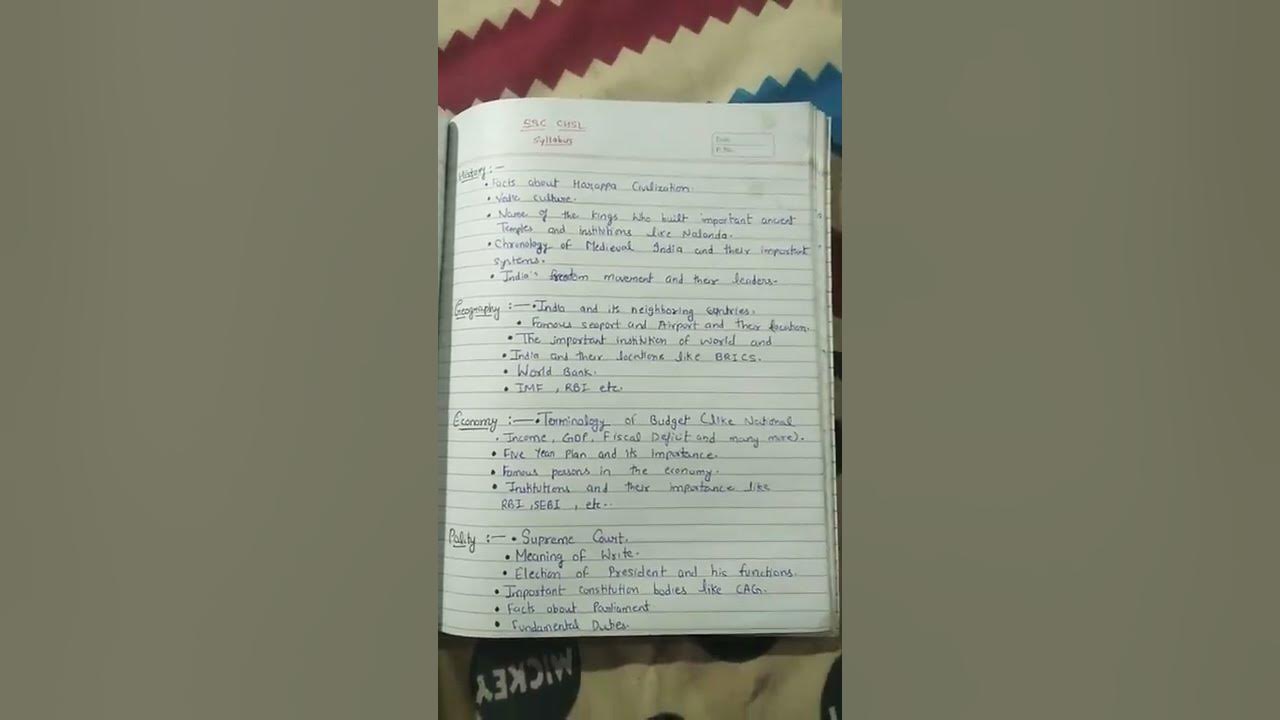 SSC CHSL
Syllabus
Date
P. No.
History :-
• Facts about Harappa Civilization.
• Vedic culture.
• Name of the kings who built important ancient
Temples and institutions like Nalanda.
• Chronology of Medieval India and their important
systems.
• India's freedom movement and their leaders.
Geography :- • India and its neighboring countries.
• Famous seaport and Airport and their location.
• The important institution of world and
• India and their locations like BRICS.
• World Bank.
• IMF , RBI etc.
Economy :- • Terminology of Budget (like National
• Income, GDP, Fiscal Deficit and many more).
• Five Year Plan and its importance.
• Famous persons in the economy.
• Institutions and their importance like
RBI ,SEBI , etc..
Polity :- • Supreme Court.
• Meaning of Write.
• Election of President and his functions.
• Important constitution bodies like CAG.
• Facts about Parliament
• Fundamental Duties.
MICKEY